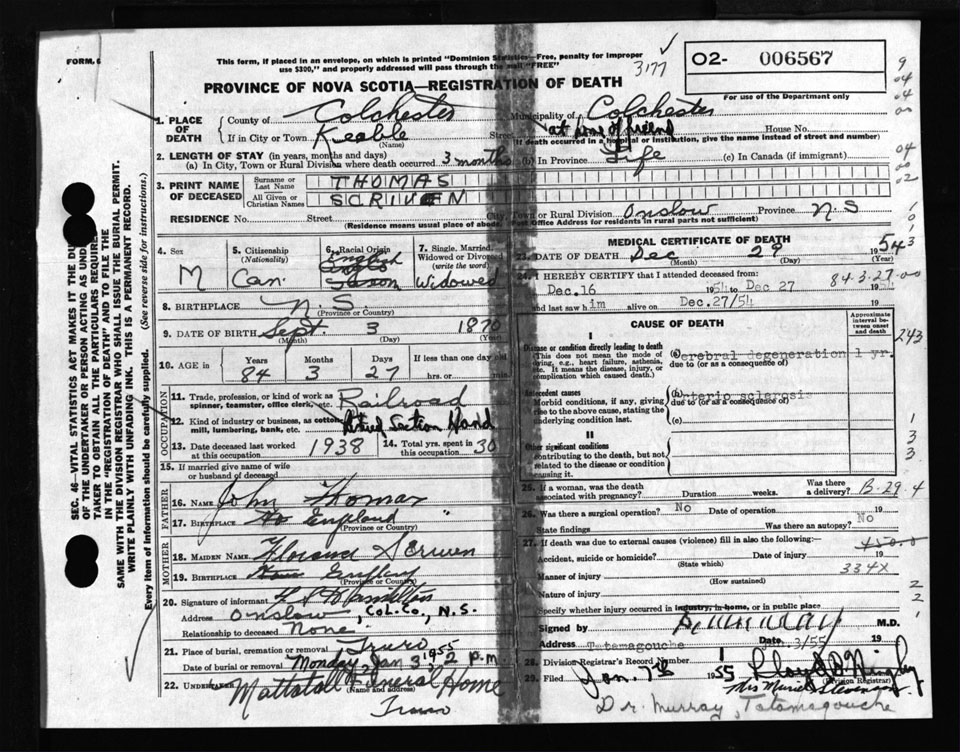 FORM. 6
This form, if placed in an envelope, on which is printed "Dominion Statistics—Free, penalty for improper
use $300," and properly addressed will pass through the mail "FREE"
3177
O2- 006567
For use of the Department only
PROVINCE OF NOVA SCOTIA—REGISTRATION OF DEATH
1. PLACE OF DEATH
County of Colchester Municipality of Colchester
If in City or Town Keable Street at home of friend House No.
(Name) (If death occurred in a hospital or institution, give the name instead of street and number)
2. LENGTH OF STAY (in years, months and days)
(a) In City, Town or Rural Division where death occurred 3 months (b) In Province Life (c) In Canada (if immigrant)
3. PRINT NAME OF DECEASED
Surname or Last Name THOMAS
All Given or Christian Names SCRIVEN
RESIDENCE No. Street City, Town or Rural Division Onslow Province N S
(Residence means usual place of abode. Post Office Address for residents in rural parts not sufficient)
4. Sex M
5. Citizenship (Nationality) Can.
6. Racial Origin English Anglo Saxon
7. Single, Married, Widowed or Divorced (write the word) Widowed
8. BIRTHPLACE N. S.
(Province or Country)
9. DATE OF BIRTH Sept. 3 1870
(Month) (Day) (Year)
10. AGE in Years Months Days If less than one day old
84 3 27 hrs. or min.
OCCUPATION
11. Trade, profession, or kind of work as spinner, teamster, office clerk, etc. Railroad
12. Kind of industry or business, as cotton mill, lumbering, bank, etc. Retired Section Hand
13. Date deceased last worked at this occupation 1938
14. Total yrs. spent in this occupation 30
15. If married give name of wife or husband of deceased
FATHER
16. NAME John Thomas
17. BIRTHPLACE England
(Province or Country)
MOTHER
18. MAIDEN NAME Florence Scriven
19. BIRTHPLACE
(Province or Country)
20. Signature of informant
Address Onslow, COL. CO., N. S.
Relationship to deceased None
21. Place of burial, cremation or removal Truro
Date of burial or removal Monday Jan 3, 1955 2 p.m.
22. Undertaker Mattatall Funeral Home
(Name and address)
Truro
MEDICAL CERTIFICATE OF DEATH
23. DATE OF DEATH Dec 29 1954
(Month) (Day) (Year)
84-3-27-00
24. I HEREBY CERTIFY that I attended deceased from:
Dec. 16 1954 to Dec 27 1954
and last saw him alive on Dec. 27/54 19
CAUSE OF DEATH
Approximate interval between onset and death
I
Disease or condition directly leading to death
(This does not mean the mode of dying, e.g., heart failure, asthenia, etc. It means the disease, injury, or complication which caused death.)
(a) Cerebral degeneration 1 yr.
due to (or as a consequence of)
Antecedent causes
Morbid conditions, if any, giving rise to the above cause, stating the underlying condition last.
(b) arterio sclerosis
due to (or as a consequence of)
(c)
II
Other significant conditions
contributing to the death, but not related to the disease or condition causing it.
25. If a woman, was the death associated with pregnancy? Duration weeks. Was there a delivery?
B-29 4
26. Was there a surgical operation? No Date of operation 19
State findings Was there an autopsy? No
27. If death was due to external causes (violence) fill in also the following:—
Accident, suicide or homicide? Date of injury 19
(State which)
334X
Manner of injury
(How sustained)
Nature of injury
Specify whether injury occurred in industry, in home, or in public place
Signed by Murray M.D.
Address Tatamagouche Date 3/55 19
28. Division Registrar's Record Number 1
29. Filed Jan. 7th 1955
(Division Registrar)
Mrs Muriel Stevenson
Dr. Murray, Tatamagouche
SEC. 46—VITAL STATISTICS ACT MAKES IT THE DUTY
OF THE UNDERTAKER OR PERSON ACTING AS UNDERTAKER
TO OBTAIN ALL THE PARTICULARS REQUIRED
IN THE "REGISTRATION OF DEATH" AND TO FILE THE
SAME WITH THE DIVISION REGISTRAR WHO SHALL ISSUE THE BURIAL PERMIT.
WRITE PLAINLY WITH UNFADING INK. THIS IS A PERMANENT RECORD.
Every item of information should be carefully supplied. (See reverse side for instructions.)
9
04
04
00
04
00
02
243
1
3
3
2
2
1